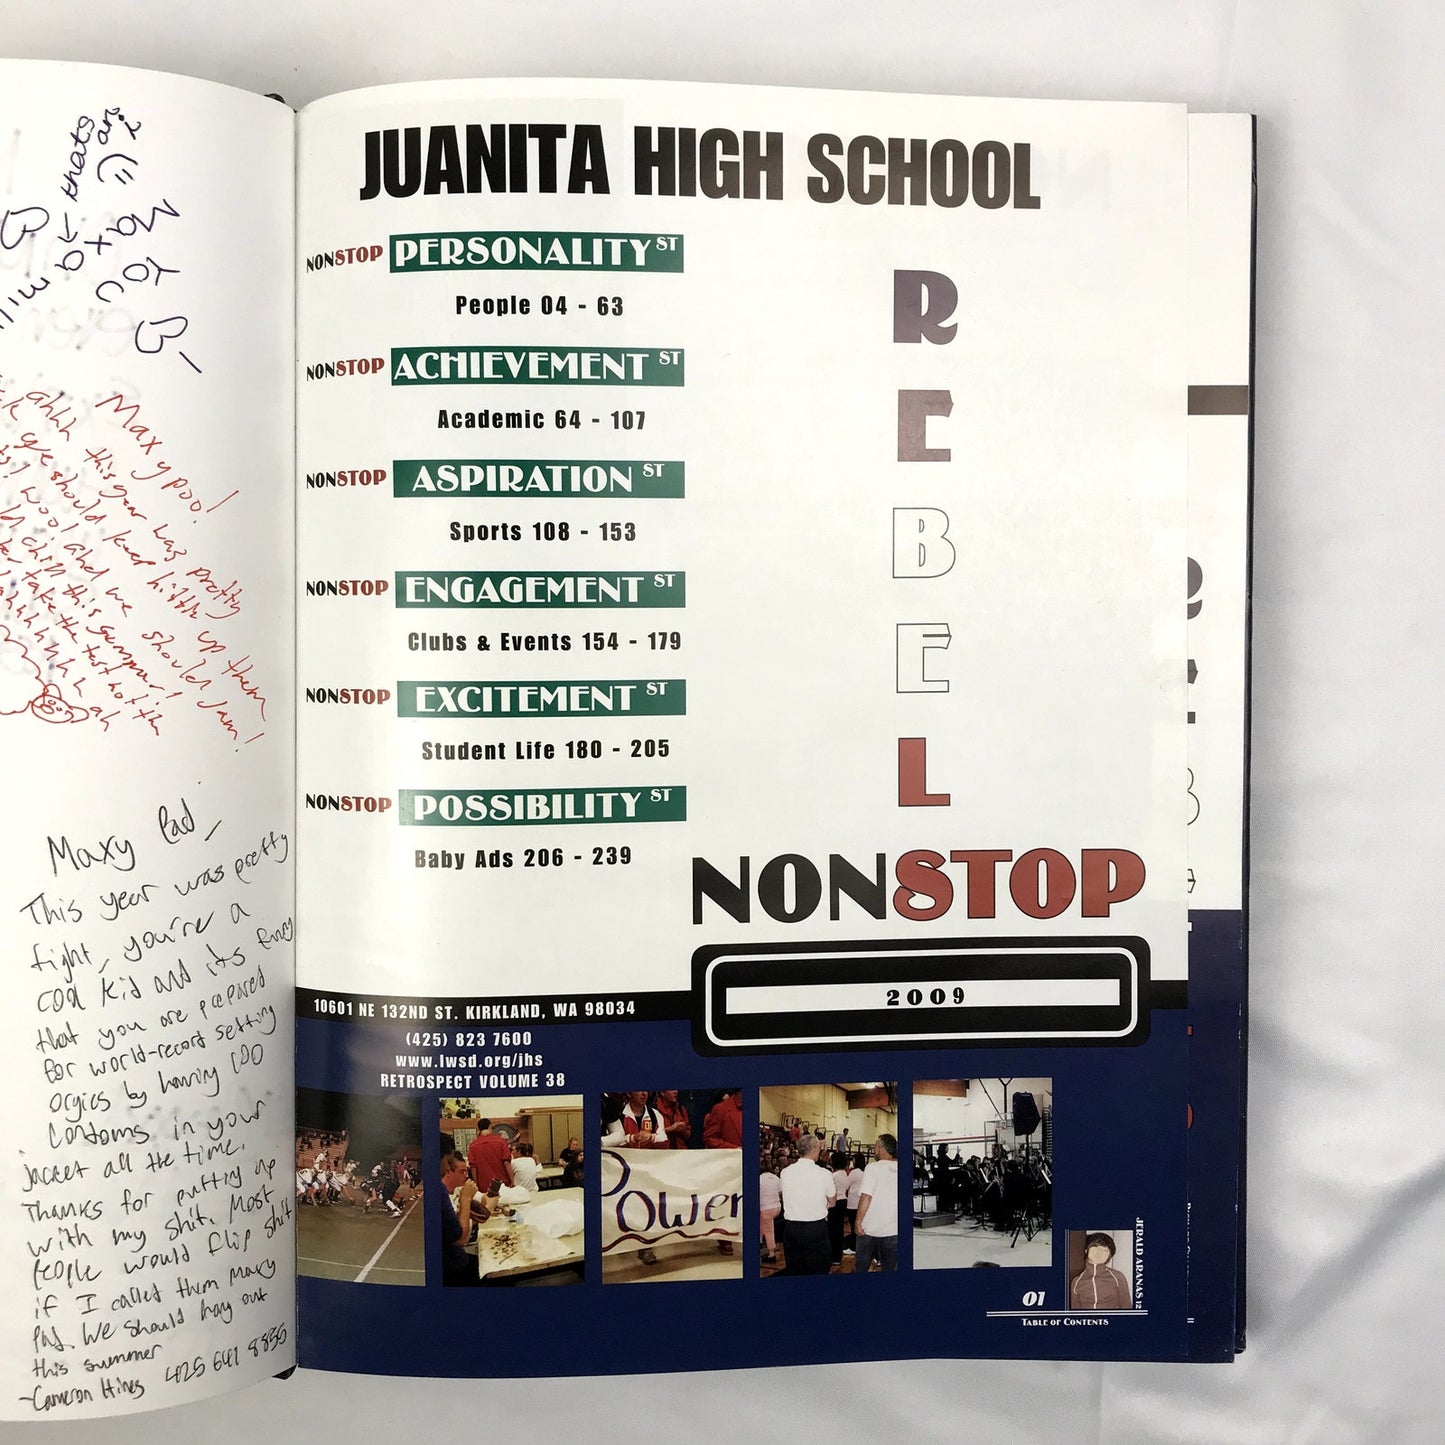 thats
Maxy
Maxypoo!
ahhh this year was pretty
should keep hittin up them
and we should jam!
chill this summer!
take the test not the
Maxy Pad,
This year was pretty
tight, you're a
cool kid and its funny
that you are prepared
for world-record setting
orgies by having 100
condoms in your
jacket all the time.
Thanks for putting up
with my shit. Most
people would flip shit
if I called them Maxy
Pad. We should hang out
this summer
-Cameron Hines 425 641 8855
JUANITA HIGH SCHOOL
NONSTOP PERSONALITY ST
People 04 - 63
NONSTOP ACHIEVEMENT ST
Academic 64 - 107
NONSTOP ASPIRATION ST
Sports 108 - 153
NONSTOP ENGAGEMENT ST
Clubs & Events 154 - 179
NONSTOP EXCITEMENT ST
Student Life 180 - 205
NONSTOP POSSIBILITY ST
Baby Ads 206 - 239
R
E
B
E
L
NONSTOP
2009
10601 NE 132ND ST. KIRKLAND, WA 98034
(425) 823 7600
www.lwsd.org/jhs
RETROSPECT VOLUME 38
Power
JERALD ARANAS 12
01
TABLE OF CONTENTS